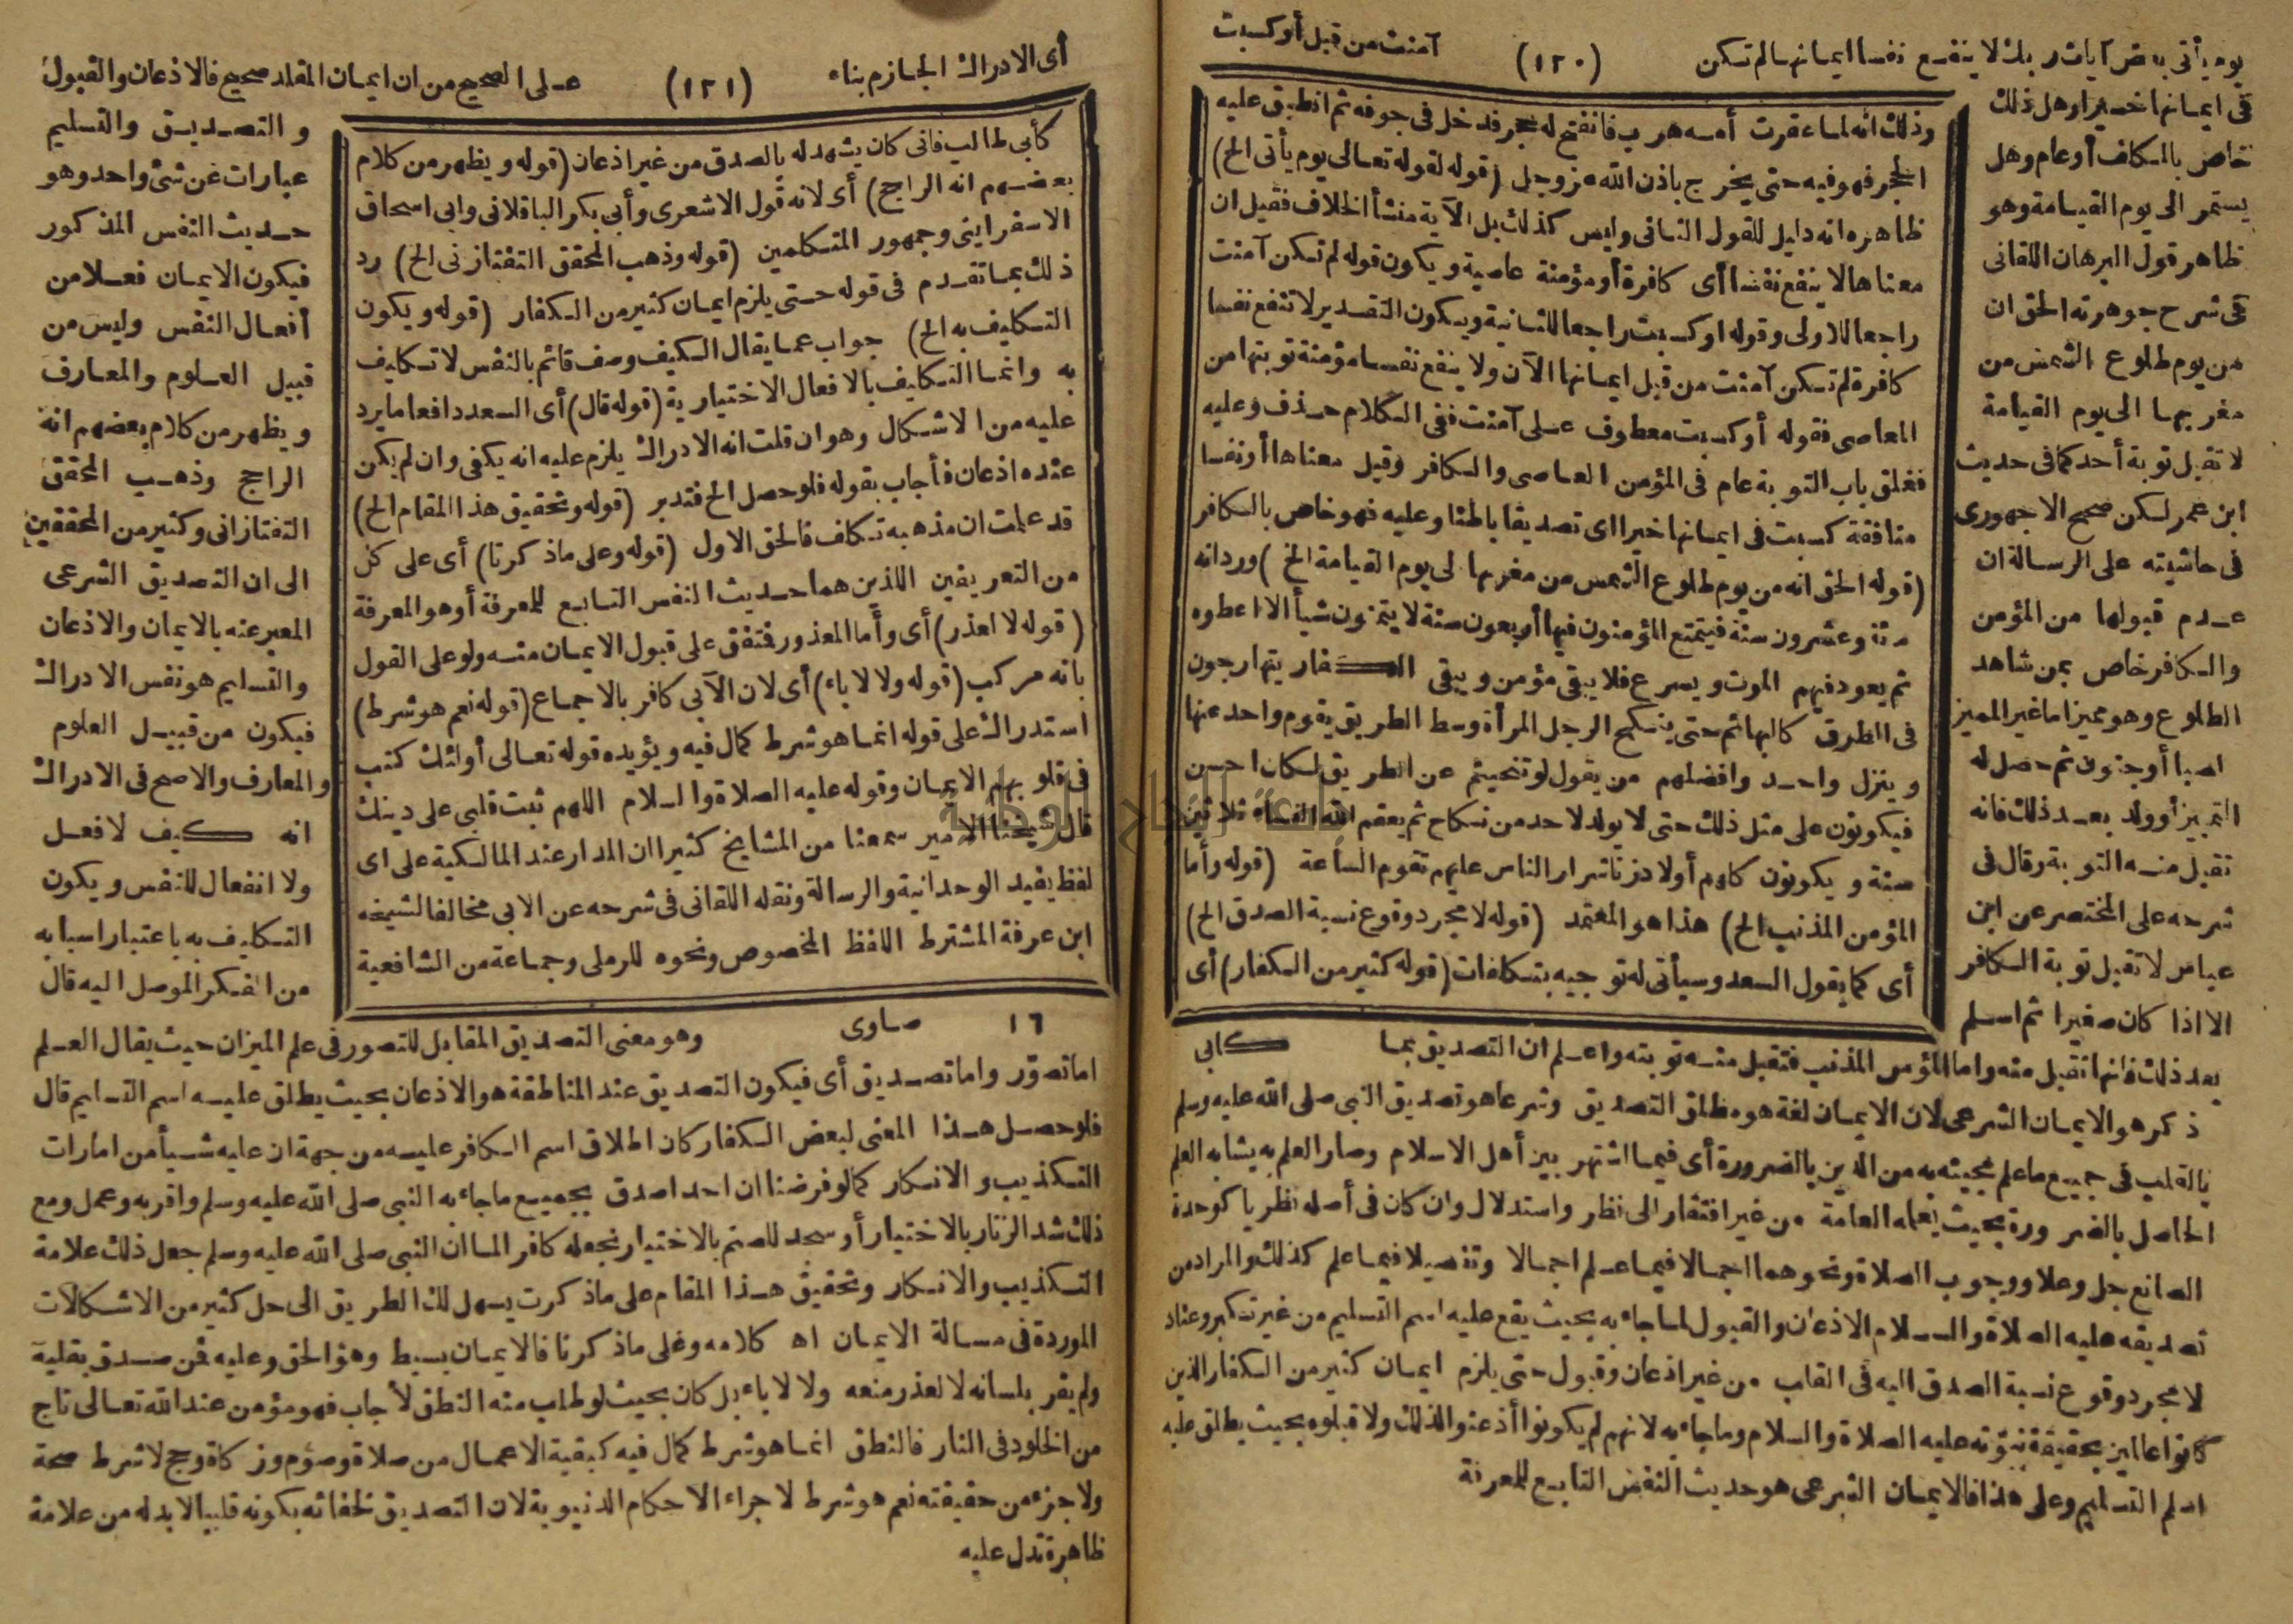 يوم يأتي بعض آيات ربك لا ينفع نفسا ايمانها لم تكن (١٢٠) آمنت من قبل أو كسبت
في ايمانها خيرا وهل ذلك
خاص بالمكلف أو عام وهل
يستمر الى يوم القيامة وهو
ظاهر قول البرهان اللقاني
في شرح جوهرته الحق ان
من يوم طلوع الشمس من
مغربها الى يوم القيامة
لا تقبل توبة أحد كما في حديث
ابن عمر لكن صحح الاجهوري
في حاشيته على الرسالة ان
عدم قبولها من المؤمن
والكافر خاص بمن شاهد
الطلوع وهو مميز اما غير المميز
لصبا أو جنون ثم حصل له
التمييز أو ولد بعد ذلك فانه
تقبل منه التوبة وقال في
شرحه على المختصر عن ابن
عباس لا تقبل توبة الكافر
الا اذا كان صغيرا ثم اسلم
بعد ذلك فانها تقبل منه واما المؤمن المذنب فتقبل منه توبته واعلم ان التصديق بما
ذكر هو الايمان الشرعي لان الايمان لغة هو مطلق التصديق وشرعا هو تصديق النبي صلى الله عليه وسلم
بالقلب في جميع ما علم مجيئه به من الدين بالضرورة أي فيما اشتهر بين أهل الاسلام وصار العلم به يشابه العلم
الحاصل بالضرورة بحيث يعلمه العامة من غير افتقار الى نظر واستدلال وان كان في أصله نظريا كوحدة
الصانع جل وعلا ووجوب الصلاة ونحوهما اجمالا فيما علم اجمالا وتفصيلا فيما علم كذلك والمراد من
تصديقه عليه الصلاة والسلام الاذعان والقبول لما جاء به بحيث يقع عليه اسم التسليم من غير تكبر وعناد
لا مجرد وقوع نسبة الصدق اليه في القلب من غير اذعان وقبول حتى يلزم ايمان كثير من الكفار الذين
كانوا عالمين بحقيقة نبوته عليه الصلاة والسلام وما جاء به لانهم لم يكونوا أذعنوا لذلك ولا قبلوه بحيث يطلق عليه
اسم التسليم وعلى هذا فالايمان الشرعي هو حديث النفس التابع للمعرفة
وذلك انه لما عقرت أمه هرب فانفتح له حجر فدخل في جوفه ثم انطبق عليه
الحجر فهو فيه حتى يخرج باذن الله عز وجل (قوله لقوله تعالى يوم يأتي الخ)
ظاهره انه دليل للقول الثاني وليس كذلك بل الآية منشأ الخلاف فقيل ان
معناها لا ينفع نفسا أي كافرة أو مؤمنة عاصية ويكون قوله لم تكن آمنت
راجعا للاولى وقوله او كسبت راجعا للثانية ويكون التقدير لا تنفع نفسا
كافرة لم تكن آمنت من قبل ايمانها الآن ولا ينفع نفسا مؤمنة توبتها من
المعاصي فقوله أو كسبت معطوف على آمنت ففي الكلام حذف وعليه
فغلق باب التوبة عام في المؤمن العاصي والكافر وقيل معناها أو نفسا
منافقة كسبت في ايمانها خيرا اى تصديقا باطنا وعليه فهو خاص بالكافر
(قوله الحق انه من يوم طلوع الشمس من مغربها لى يوم القيامة الخ) ورد انه
مئة وعشرون سنة فيتمتع المؤمنون فيها أربعون سنة لا يتمنون شيأ الا اعطوه
ثم يعود فيهم الموت ويسرع فلا يبقى مؤمن ويبقى الكفار يتهارجون
في الطرق كالبهائم حتى ينكح الرجل المرأة وسط الطريق يقوم واحد عنها
وينزل واحد وافضلهم من يقول لو تنحيتم عن الطريق لكان احسن
فيكونون على مثل ذلك حتى لا يولد لاحد من نكاح ثم يعقم الله النساء ثلاثين
سنة ويكونون كلهم أولاد زنا شرار الناس عليهم تقوم الساعة (قوله وأما
المؤمن المذنب الخ) هذا هو المعتمد (قوله لا مجرد وقوع نسبة الصدق الخ)
أي كما يقول السعد وسيأتي له توجيه بتكلفات (قوله كثير من الكفار) أي
كابي
أي الادراك الجازم بناء (١٢١) على الصحيح من ان ايمان المقلد صحيح فالاذعان والقبول
والتصديق والتسليم
عبارات عن شئ واحد وهو
حديث النفس المذكور
فيكون الايمان فعلا من
أفعال النفس وليس من
قبيل العلوم والمعارف
ويظهر من كلام بعضهم انه
الراجح وذهب المحقق
التفتازاني وكثير من المحققين
الى ان التصديق الشرعي
المعبر عنه بالايمان والاذعان
والتسليم هو نفس الادراك
فيكون من قبيل العلوم
والمعارف والاصح في الادراك
انه كيف لا فعل
ولا انفعال للنفس ويكون
التكليف به باعتبار اسبابه
من الفكر الموصل اليه قال
كأبي طالب فاني كان يشهد له بالصدق من غير اذعان (قوله ويظهر من كلام
بعضهم انه الراجح) أي لانه قول الاشعري وأبي بكر الباقلاني وابي اسحاق
الاسفرايني وجمهور المتكلمين (قوله وذهب المحقق التفتازني الخ) رد
ذلك بما تقدم في قوله حتى يلزم ايمان كثير من الكفار (قوله ويكون
التكليف به الخ) جواب عما يقال الكيف وصف قائم بالنفس لا تكليف
به وانما التكليف بالافعال الاختيارية (قوله قال) أي السعد دافعا ما يرد
عليه من الاشكال وهو ان قلت انه الادراك يلزم عليه انه يكفى وان لم يكن
عنده اذعان فأجاب بقوله فلو حصل الخ فتدبر (قوله وتحقيق هذا المقام الخ)
قد علمت ان مذهبه تكلف فالحق الاول (قوله وعلى ماذكرنا) أي على كل
من التعريفين اللذين هما حديث النفس التابع للمعرفة أو هو المعرفة
(قوله لا لعذر) أي وأما المعذور فتفق على قبول الايمان منه ولو على القول
بانه مركب (قوله ولا لاباء) أي لان الآبي كافر بالاجماع (قوله نعم هو شرط)
استدراك على قوله انما هو شرط كمال فيه ويؤيده قوله تعالى أولئك كتب
في قلوبهم الايمان وقوله عليه الصلاة والسلام اللهم ثبت قلبي على دينك
قال شيخنا الامير سمعنا من المشايخ كثيرا ان المدار عند المالكية على اى
لفظ يفيد الوحدانية والرسالة ونقله اللقاني في شرحه عن الابي مخالفا لشيخه
ابن عرفة المشترط اللفظ المخصوص ونحوه للرملي وجماعة من الشافعية
١٦ صاوى
وهو معنى التصديق المقابل للتصور في علم الميزان حيث يقال العلم
اما تصوّر واما تصديق أي فيكون التصديق عند المناطقة هو الاذعان بحيث يطلق عليه اسم التسليم قال
فلو حصل هذا المعنى لبعض الكفار كان اطلاق اسم الكافر عليه من جهة ان عليه شيأ من امارات
التكذيب والانكار كما لو فرضنا ان احدا صدق بجميع ما جاء به النبي صلى الله عليه وسلم واقر به وعمل ومع
ذلك شد الزنار بالاختيار أو سجد للصنم بالاختيار نجعله كافر الما ان النبي صلى الله عليه وسلم جعل ذلك علامة
التكذيب والانكار وتحقيق هذا المقام على ماذكرت يسهل لك الطريق الى حل كثير من الاشكالات
الموردة في مسالة الايمان اه كلامه وعلى ماذكرنا فالايمان بسيط وهو الحق وعليه فمن صدق بقلبه
ولم يقر بلسانه لا لعذر منعه ولا لاباء بل كان بحيث لو طلب منه النطق لأجاب فهو مؤمن عند الله تعالى ناج
من الخلود في النار فالنطق انما هو شرط كمال فيه كبقية الاعمال من صلاة وصوم وزكاة وحج لا شرط صحة
ولا جزء من حقيقته نعم هو شرط لاجراء الاحكام الدنيوية لان التصديق لخفائه بكونه قلبيا لابد له من علامة
ظاهرة تدل عليه